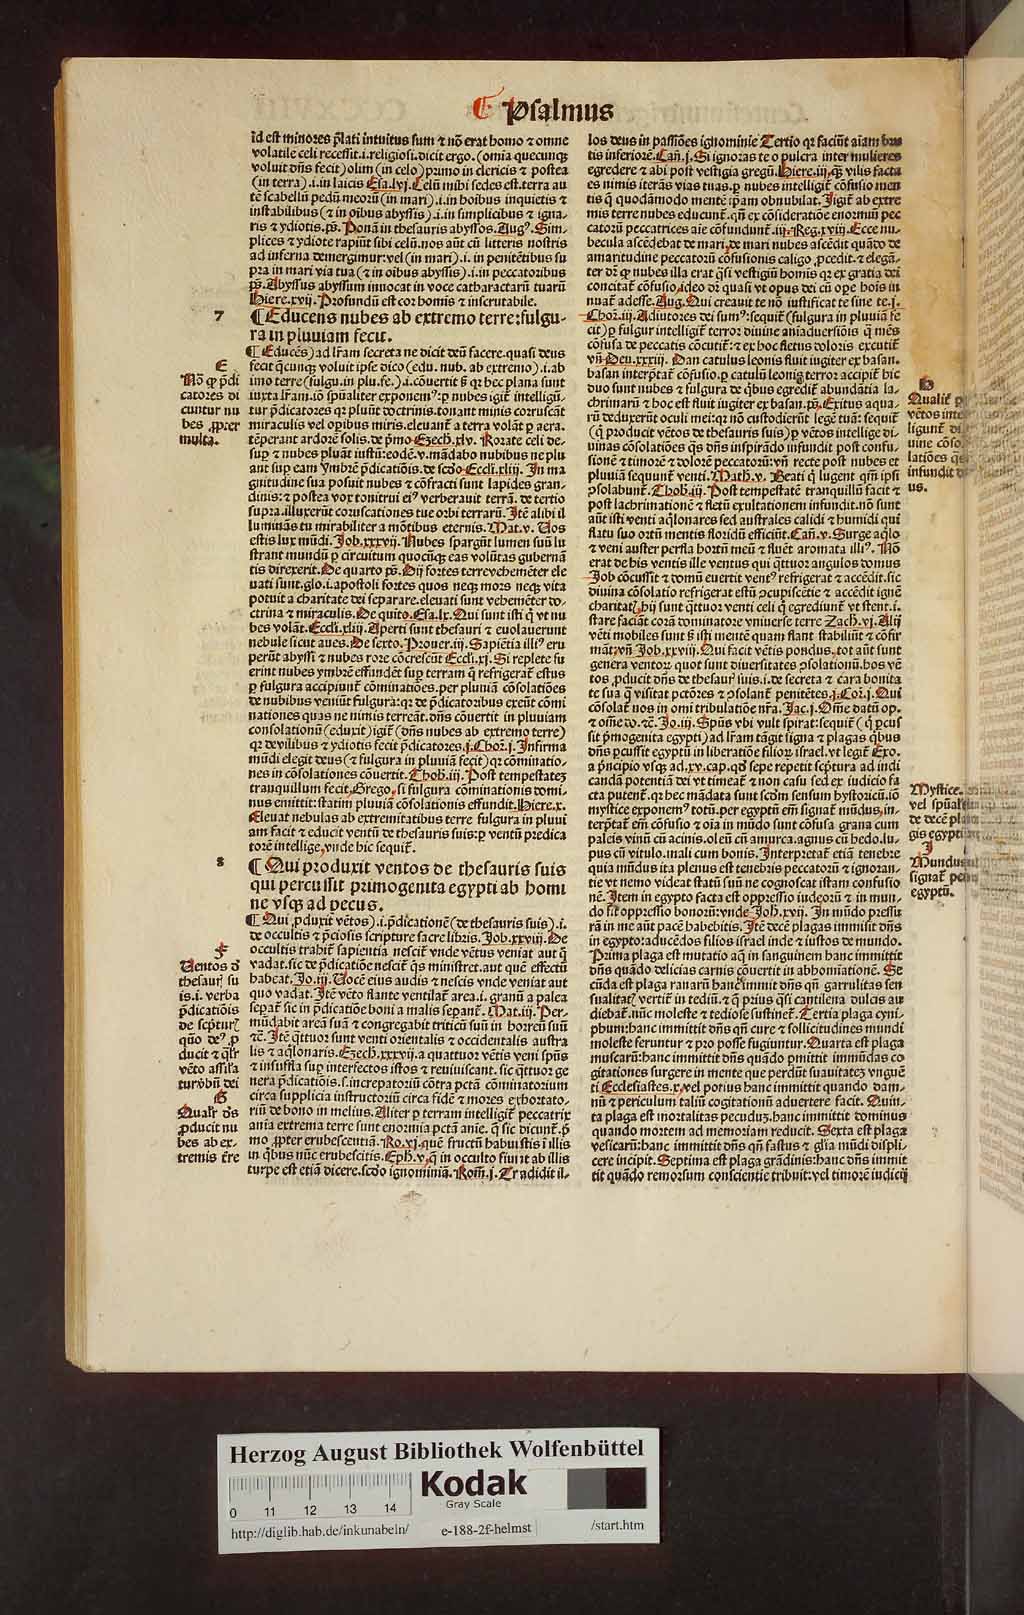 Psalmus
id est minores p̄lati intuitus sum ⁊ nō erat homo ⁊ omne
volatile celi recessit.i.religiosi.dicit ergo. (omīa quecunqꝫ
voluit dn̄s fecit) olim (in celo) primo in clericis ⁊ postea
(in terra).i.in laicis Esa.lvj. Celū mihi sedes est.terra au
tē scabellū pedū meorū (in mari).i.in hoibus inquietis ⁊
instabilibus (⁊ in oībus abyssis).i.in simplicibus ⁊ igna-
ris ⁊ ydiotis.ps̄. Ponā in thesauris abyssos. Augꝰ. Sim-
plices ⁊ ydiote rapiūt sibi celū.nos aūt cū litteris nostris
ad inferna demergimur:vel (in mari).i. in penitētibus su
pra in mari via tua (⁊ in oībus abyssis).i.in peccatoribus
ps̄. Abyssus abyssum inuocat in voce catharactarū tuarū
Hiere.xvij. Profundū est cor homis ⁊ inscrutabile.
7
¶ Educens nubes ab extremo terre:fulgu-
ra in pluuiam fecit.
¶ Educēs) ad lr̄am secreta ne dicit deū facere.quasi deus
fecit q̄cunqꝫ voluit ipse dico (edu. nub. ab extremo).i.ab
imo terre (fulgu.in plu.fe.).i.cōuertit s̄ꝫ qr hec plana sunt
iuxta lr̄am.iō spūaliter exponemꝰ:p nubes igit̄ intelligū-
tur p̄dicatores qr pluūt doctrinis.tonant minis corruscāt
miraculis vel opibus miris.eleuant̄ a terra volāt p aera.
tēperant ardorē solis.de pͥmo Ezech.xlv. Rorate celi de-
sup ⁊ nubes pluāt iustū:eodē.v.mādabo nubibus ne plu
ant sup eam ymbrē p̄dicatiōis.de sc̄do Eccli.xliij. In ma
gnitudine sua posuit nubes ⁊ cōfracti sunt lapides gran-
dinis: ⁊ postea vox tonitrui eiꝰ verberauit terrā. de tertio
supra.illuxerūt coruscationes tue orbi terrarū. Itē alibi il
luminās tu mirabiliter a mōtibus eternis. Mat.v. Uos
estis lux mūdi. Iob.xxxvij. Nubes spargūt lumen suū lu
strant mundū p circuitum quocūqꝫ eas volūtas gubernā
tis direxerit. De quarto ps̄. Dij fortes terre vehemēter ele
uati sunt.glo.i.apostoli fortes quos neqꝫ mors neqꝫ vita
potuit a charitate dei separare.eleuati sunt vehemēter do-
ctrina ⁊ miraculis. De quīto. Esa.lx. Qui sunt isti q̄ vt nu
bes volāt. Eccli.xliij. Aperti sunt thesauri ⁊ euolauerunt
nebule sicut aues. De sexto. Prouer.iij. Sapiētia illiꝰ eru
perūt abyssi ⁊ nubes rore cōcrescūt Eccli.xj. Si replete fu
erint nubes ymbrē effundēt sup terram q̄ refrigerat̄ estus
p fulgura accipiunt̄ cōminatiōes.per pluuiā cōsolatiōes
de nubibus veniūt fulgura:qr de p̄dicatoribus exeūt cōmi
nationes quas ne nimis terreāt.dn̄s cōuertit in pluuiam
consolationū (eduxit) igit̄ (dn̄s nubes ab extremo terre)
qr devilibus ⁊ ydiotis fecit p̄dicatores.j.Chor.j. Infirma
mūdi elegit deus (⁊ fulgura in pluuiā fecit) qr cōminatio-
nes in cōsolationes cōuertit. Thob.iij. Post tempestateꝫ
tranquillum fecit. Grego. si fulgura cōminationes domi-
nus emittit:statim pluuiā cōsolationis effundit. Hiere.x.
Eleuat nebulas ab extremitatibus terre fulgura in pluui
am facit ⁊ educit ventū de thesauris suis:p ventū predica
torē intellige.vnde hic sequit̄.
8
¶ Qui produxit ventos de thesauris suis
qui percussit primogenita egypti ab homi
ne vsqꝫ ad pecus.
¶ Qui ꝓduxit vētos).i.p̄dicationē (de thesauris suis).i.
de occultis ⁊ p̄ciosis scripture sacre libris. Iob.xxviij. De
occultis trahit̄ sapientia nescit̄ vnde vētus veniat aut q̄
vadat.sic de p̄dicatiōe nescit̄ qs ministret.aut quē effectū
habeat. Io.iij. Uocē eius audis ⁊ nescis vnde veniat aut
quo vadat. Itē vēto flante ventilat̄ area.i. granū a palea
sepat̄ sic in p̄dicatiōe boni a malis sepant̄. Mat.iij. Per-
mūdabit areā suā ⁊ congregabit triticū suū in horreū suū
⁊c̄. Itē q̄ttuor sunt venti orientalis ⁊ occidentalis austra
lis ⁊ aq̄lonaris. Ezech.xxxvij.a quattuor vētis veni spūs
⁊ insuffla sup interfectos istos ⁊ reuiuiscant. sic q̄ttuor ge
nera p̄dicatiōis.s.increpatoriū cōtra pctā cōminatorium
circa supplicia instructoriū circa fidē ⁊ mores exhortato-
riū de bono in melius. Aliter p terram intelligit̄ peccatrix
ania extrema terre sunt enormia pctā anie. q̄ sic dicunt̄.pͥ
mo ꝓpter erubescentiā. Ro.vj.quē fructū habuistis ī illis
in qͥbus nūc erubescitis. Eph.v.q̄ in occulto fiūt ab illis
turpe est etiā dicere.scd̄o ignominiā. Rom̄.j. Tradidit il-
E
Nō qꝫ p̄di
catores di
cuntur nu
bes ꝓpter
multa.
F
Uentos d̄
thesaurꝭ su
is.i. verba
p̄dicatiōis
de sc̄pturꝭ
quō deꝰ ꝓ
ducit ⁊ qͣlr̄
vēto assila
tur vbū dei
G
Qualr̄ dn̄s
ꝓducit nu
bes ab ex-
tremis tr̄re
los deus in passiōes ignominie Tertio qr faciūt aīam bru
tis inferiorē. Can̄.j. Si ignoras te o pulcra inter mulieres
egredere ⁊ abi post vestigia gregū. Hiere.iij.qꝫ vilis facta
es nimis iterās vias tuas.p nubes intelligit̄ cōfusio men
tis q̄ quodāmodo mentē ip̄am obnubilat. Igit̄ ab extre
mis terre nubes educunt̄.qn̄ ex cōsideratiōe enormiū pec
catorū peccatrices aīe cōfundunt̄.iij.Reg.xviij. Ecce nu-
becula ascēdebat de mari.de mari nubes ascēdit quādo de
amaritudine peccatorū cōfusionis caligo ꝓcedit.⁊ elegā-
ter dr̄ qꝫ nubes illa erat q̄si vestigiū homis qr ex gratia dei
concitat̄ cōfusio.ideo dr̄ quasi vt opus dei cū ope hois in
nuat̄ adesse. Aug. Qui creauit te nō iustificat te sine te.j.
Chor.iij. Adiutores dei sumꝰ:sequit̄ (fulgura in pluuiā fe
cit) p fulgur intelligit̄ terror diuine aniaduersiōis q̄ mēs
cōfusa de peccatis cōcutit̄:⁊ ex hoc fletus doloris excutit̄
vn̄ Deu.xxxiij. Dan catulus leonis fluit iugiter ex basan.
basan interp̄tat̄ cōfusio.p catulū leonis terror accipit̄ hic
duo sunt nubes ⁊ fulgura de qͥbus egredit̄ abundātia la-
chrimarū ⁊ hoc est fluit iugiter ex basan.ps̄. Exitus aqua-
rū deduxerūt oculi mei:qr nō custodierūt legē tuā: sequit̄
(q̄ producit vētos de thesauris suis) p vētos intellige di-
uinas cōsolatiōes qs dn̄s inspirādo infundit post confu-
sionē ⁊ timorē ⁊ dolorē peccatorū:vn̄ recte post nubes et
pluuiā sequunt̄ venti. Math.v. Beati q̄ lugent qm̄ ipsi
ↄsolabunt̄. Thob.iij. Post tempestatē tranquillū facit ⁊
post lachrimationē ⁊ fletū exultationem infundit.nō sunt
aūt isti venti aq̄lonares sed australes calidi ⁊ humidi qui
flatu suo ortū mentis floridū efficiūt. Can̄.v. Surge aq̄lo
⁊ veni auster perfla hortū meū ⁊ fluēt aromata illiꝰ. Nō
erat de his ventis ille ventus qui q̄ttuor angulos domus
Iob cōcussit ⁊ domū euertit ventꝰ refrigerat ⁊ accēdit.sic
diuina cōsolatio refrigerat estū ↄcupiscētie ⁊ accēdit ignē
charitatꝭ.hij sunt q̄ttuor venti celi q̄ egrediunt̄ vt stent.i.
stare faciāt corā dominatore vniuerse terre Zach.vj. Alij
vēti mobiles sunt s̄ꝫ isti mentē quam flant stabiliūt ⁊ cōfir
māt:vn̄ Iob.xxviij. Qui facit vētis pondus.tot aūt sunt
genera ventorꝝ quot sunt diuersitates ↄsolationū.hos vē
tos ꝓducit dn̄s de thesaurꝭ suis.i.de secreta ⁊ cara bonita
te sua q̄ visitat pctōres ⁊ ↄsolant̄ penitētes.j.Cor.j. Qui
cōsolat̄ nos in omi tribulatiōe nr̄a. Iac.j. Ōme datū op.
⁊ om̄e do. ⁊c̄. Io.iij. Spūs vbi vult spirat:sequit̄ (q̄ pcus
sit pͥmogenita egypti) ad lr̄am tāgit signa ⁊ plagas qͥbus
dn̄s pcussit egyptū in liberatiōe filiorꝝ israel.vt legit̄ Exo.
a pͥncipio vsqꝫ ad.xv.cap.qd̄ sepe repetit scptura ad indi
candā potentiā dei vt timeat̄ ⁊ non casu sed ex iudicio fa
cta putent̄.qr hec mādata sunt scdm sensum hystoricū.iō
mystice exponemꝰ totū.per egyptū em̄ signat̄ mūdus.in-
terp̄tat̄ em̄ cōfusio ⁊ oīa in mūdo sunt cōfusa grana cum
paleis vinū cū acinis.oleū cū amurca.agnus cū hedo.lu-
pus cū vitulo.mali cum bonis. Interpretat̄ etiā tenebre
quia mūdus ita plenus est tenebris peccatorū ⁊ ignoran-
tie vt nemo videat statū suū ne cognoscat istam confusio
nē. Item in egypto facta est oppressio iudeorū ⁊ in mun-
do sit oppressio bonorū:vnde Ioh.xvij. In mūdo pressu
rā in me aūt pacē habebitis. Itē decē plagas immisit dn̄s
in egypto:aducēdos filios israel inde ⁊ iustos de mundo.
Prima plaga est mutatio aq̄ in sanguinem hanc immittit
dn̄s quādo delicias carnis cōuertit in abhoīationē. Se
cūda est plaga ranarū hanc immit̄ dn̄s qn̄ garrulitas sen
sualitatꝭ vertit̄ in tediū.⁊ q̄ prius q̄si cantilena dulcis au
diebat̄.nūc moleste ⁊ tediose sustinet̄. Tertia plaga cyni-
phum:hanc immittit dn̄s qn̄ cure ⁊ sollicitudines mundi
moleste feruntur ⁊ pro posse fugiuntur. Quarta est plaga
muscarū:hanc immittit dn̄s quādo pmittit immūdas co
gitationes surgere in mente que perdūt suauitateꝫ vnguē
ti Ecclesiastes.x.vel potius hanc immittit quando dam-
nū ⁊ periculum taliū cogitationū aduertere facit. Quin-
ta plaga est mortalitas pecudūꝫ.hanc immittit dominus
quando mortem ad memoriam reducit. Sexta est plaga
vesicarū:hanc immittit dn̄s qn̄ fastus ⁊ gl̄ia mūdi displi-
cere incipit. Septima est plaga grādinis:hanc dn̄s immit
tit quādo remorsum conscientie tribuit:vel timorē iudicij
H
Qualit̄ p
vētos inte
ligunt̄ di
uine cōso
latiōes
infundit
us.
Mystice.
vel spūal
de decē pla
gis egypti
I
Mundus
signat̄ per
egyptū.
Herzog August Bibliothek Wolfenbüttel
0 11 12 13 14
Kodak
Gray Scale
http://diglib.hab.de/inkunabeln/ e-188-2f-helmst /start.htm